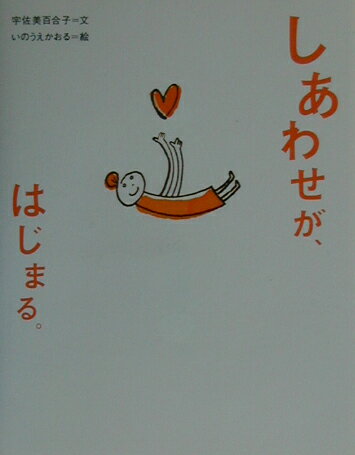 宇佐美百合子=文
いのうえかおる=絵
しあわせが、
はじまる。